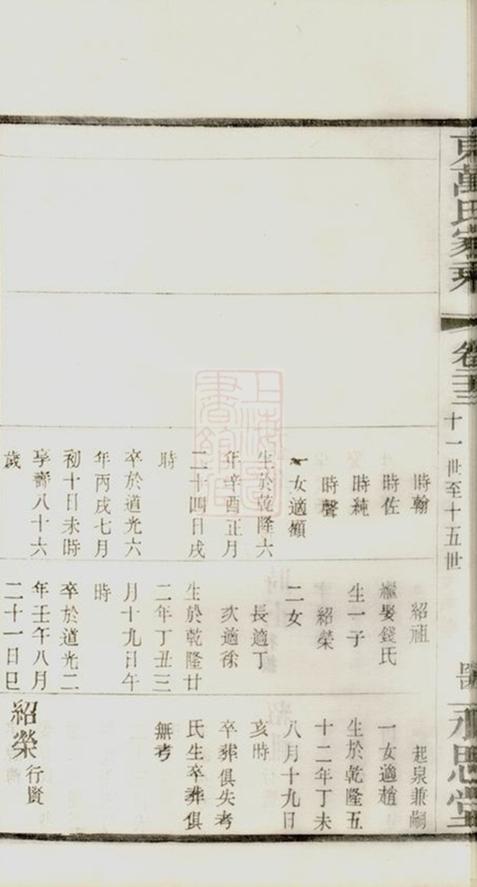 東萬氏家乘
卷
十一世至十五世
永思堂
時翰
時佐
時純
時聲
一女適顧
生於乾隆六
年辛酉正月
二十四日戌
時
卒於道光六
年丙戌七月
初十日未時
享壽八十六
歲
紹祖
繼娶錢氏
生一子
紹榮
二女
長適丁
次適徐
生於乾隆廿
二年丁丑三
月十九日午
時
卒於道光二
年壬午八月
二十一日巳
起泉兼嗣
一女適趙
生於乾隆五
十二年丁未
八月十九日
亥時
卒葬俱失考
氏生卒葬俱
無考
紹榮 行賢
上海圖
書館